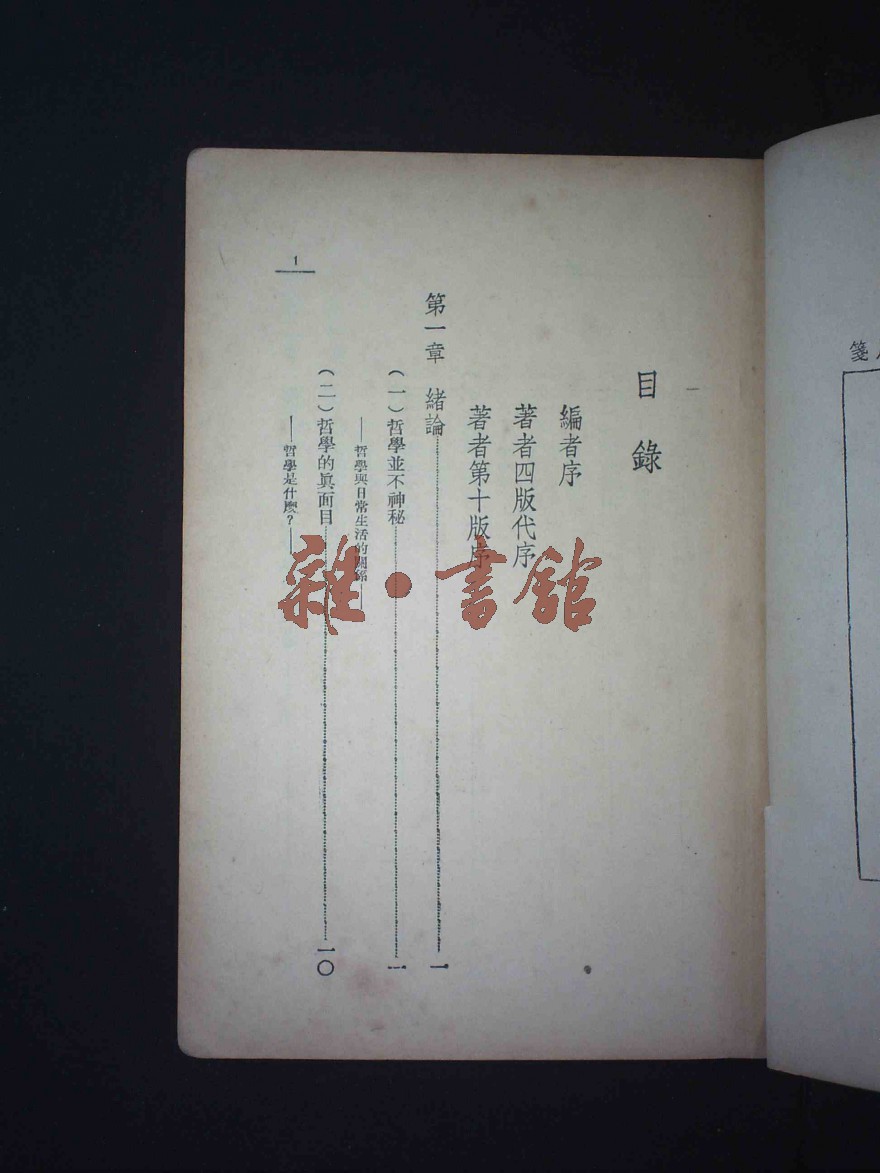 目錄
編者序
著者四版代序
著者第十版序
第一章 緒論……一
(一)哲學並不神秘……一
——哲學與日常生活的關係——
(二)哲學的眞面目……一〇
——哲學是什麽?——
1
雜·書館
箋